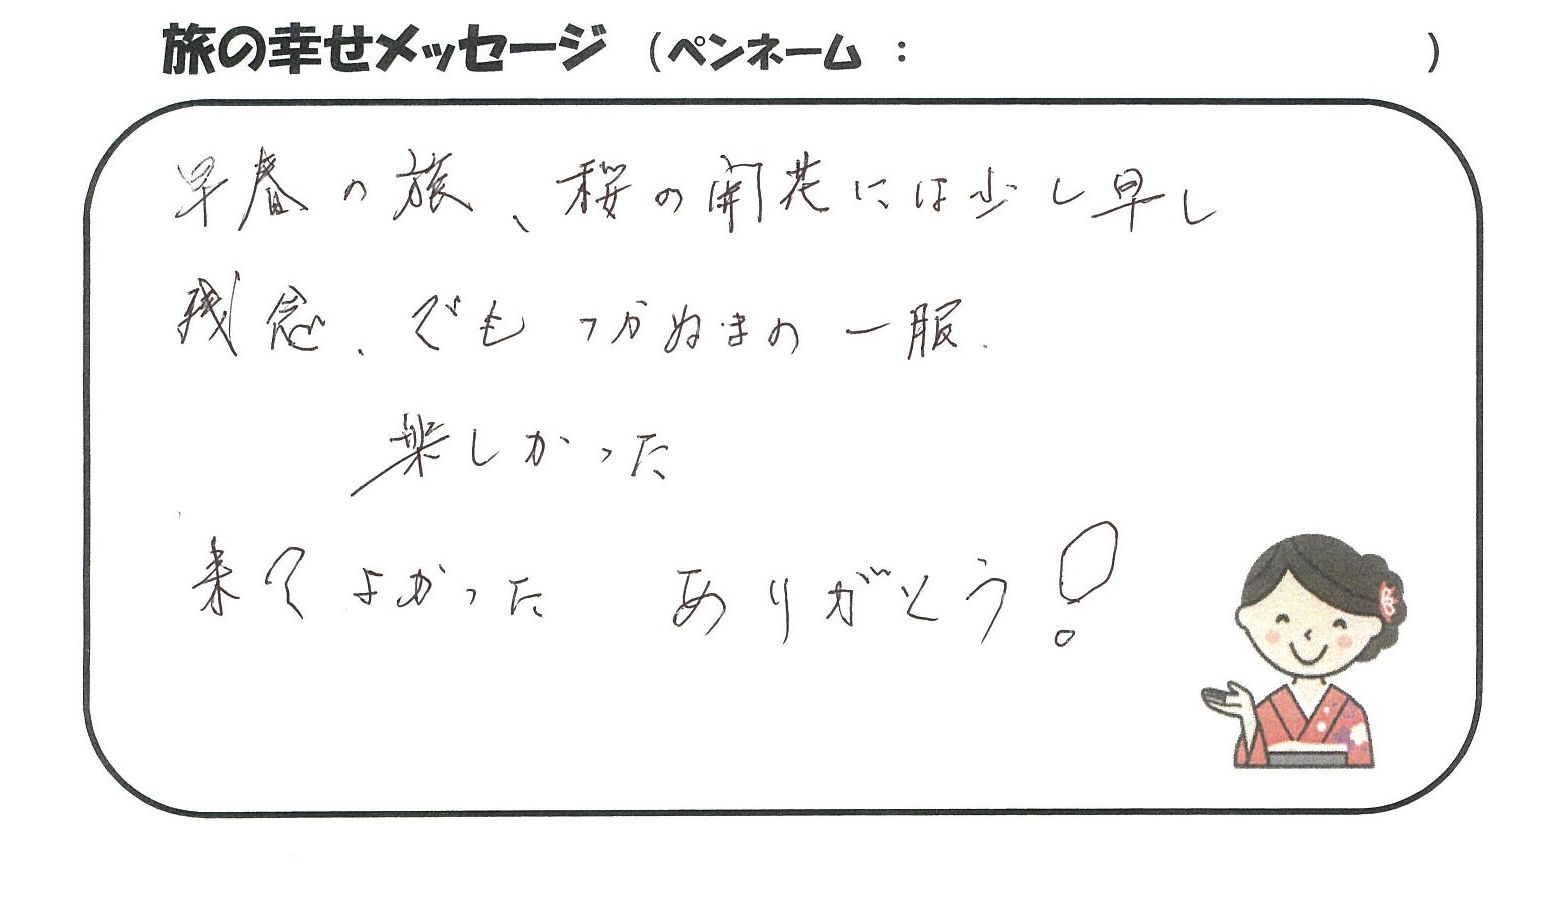 旅の幸せメッセージ （ペンネーム ： ）
早春の旅、桜の開花には少し早し
残念、でもつかぬまの一服.
楽しかった
来てよかった ありがとう!